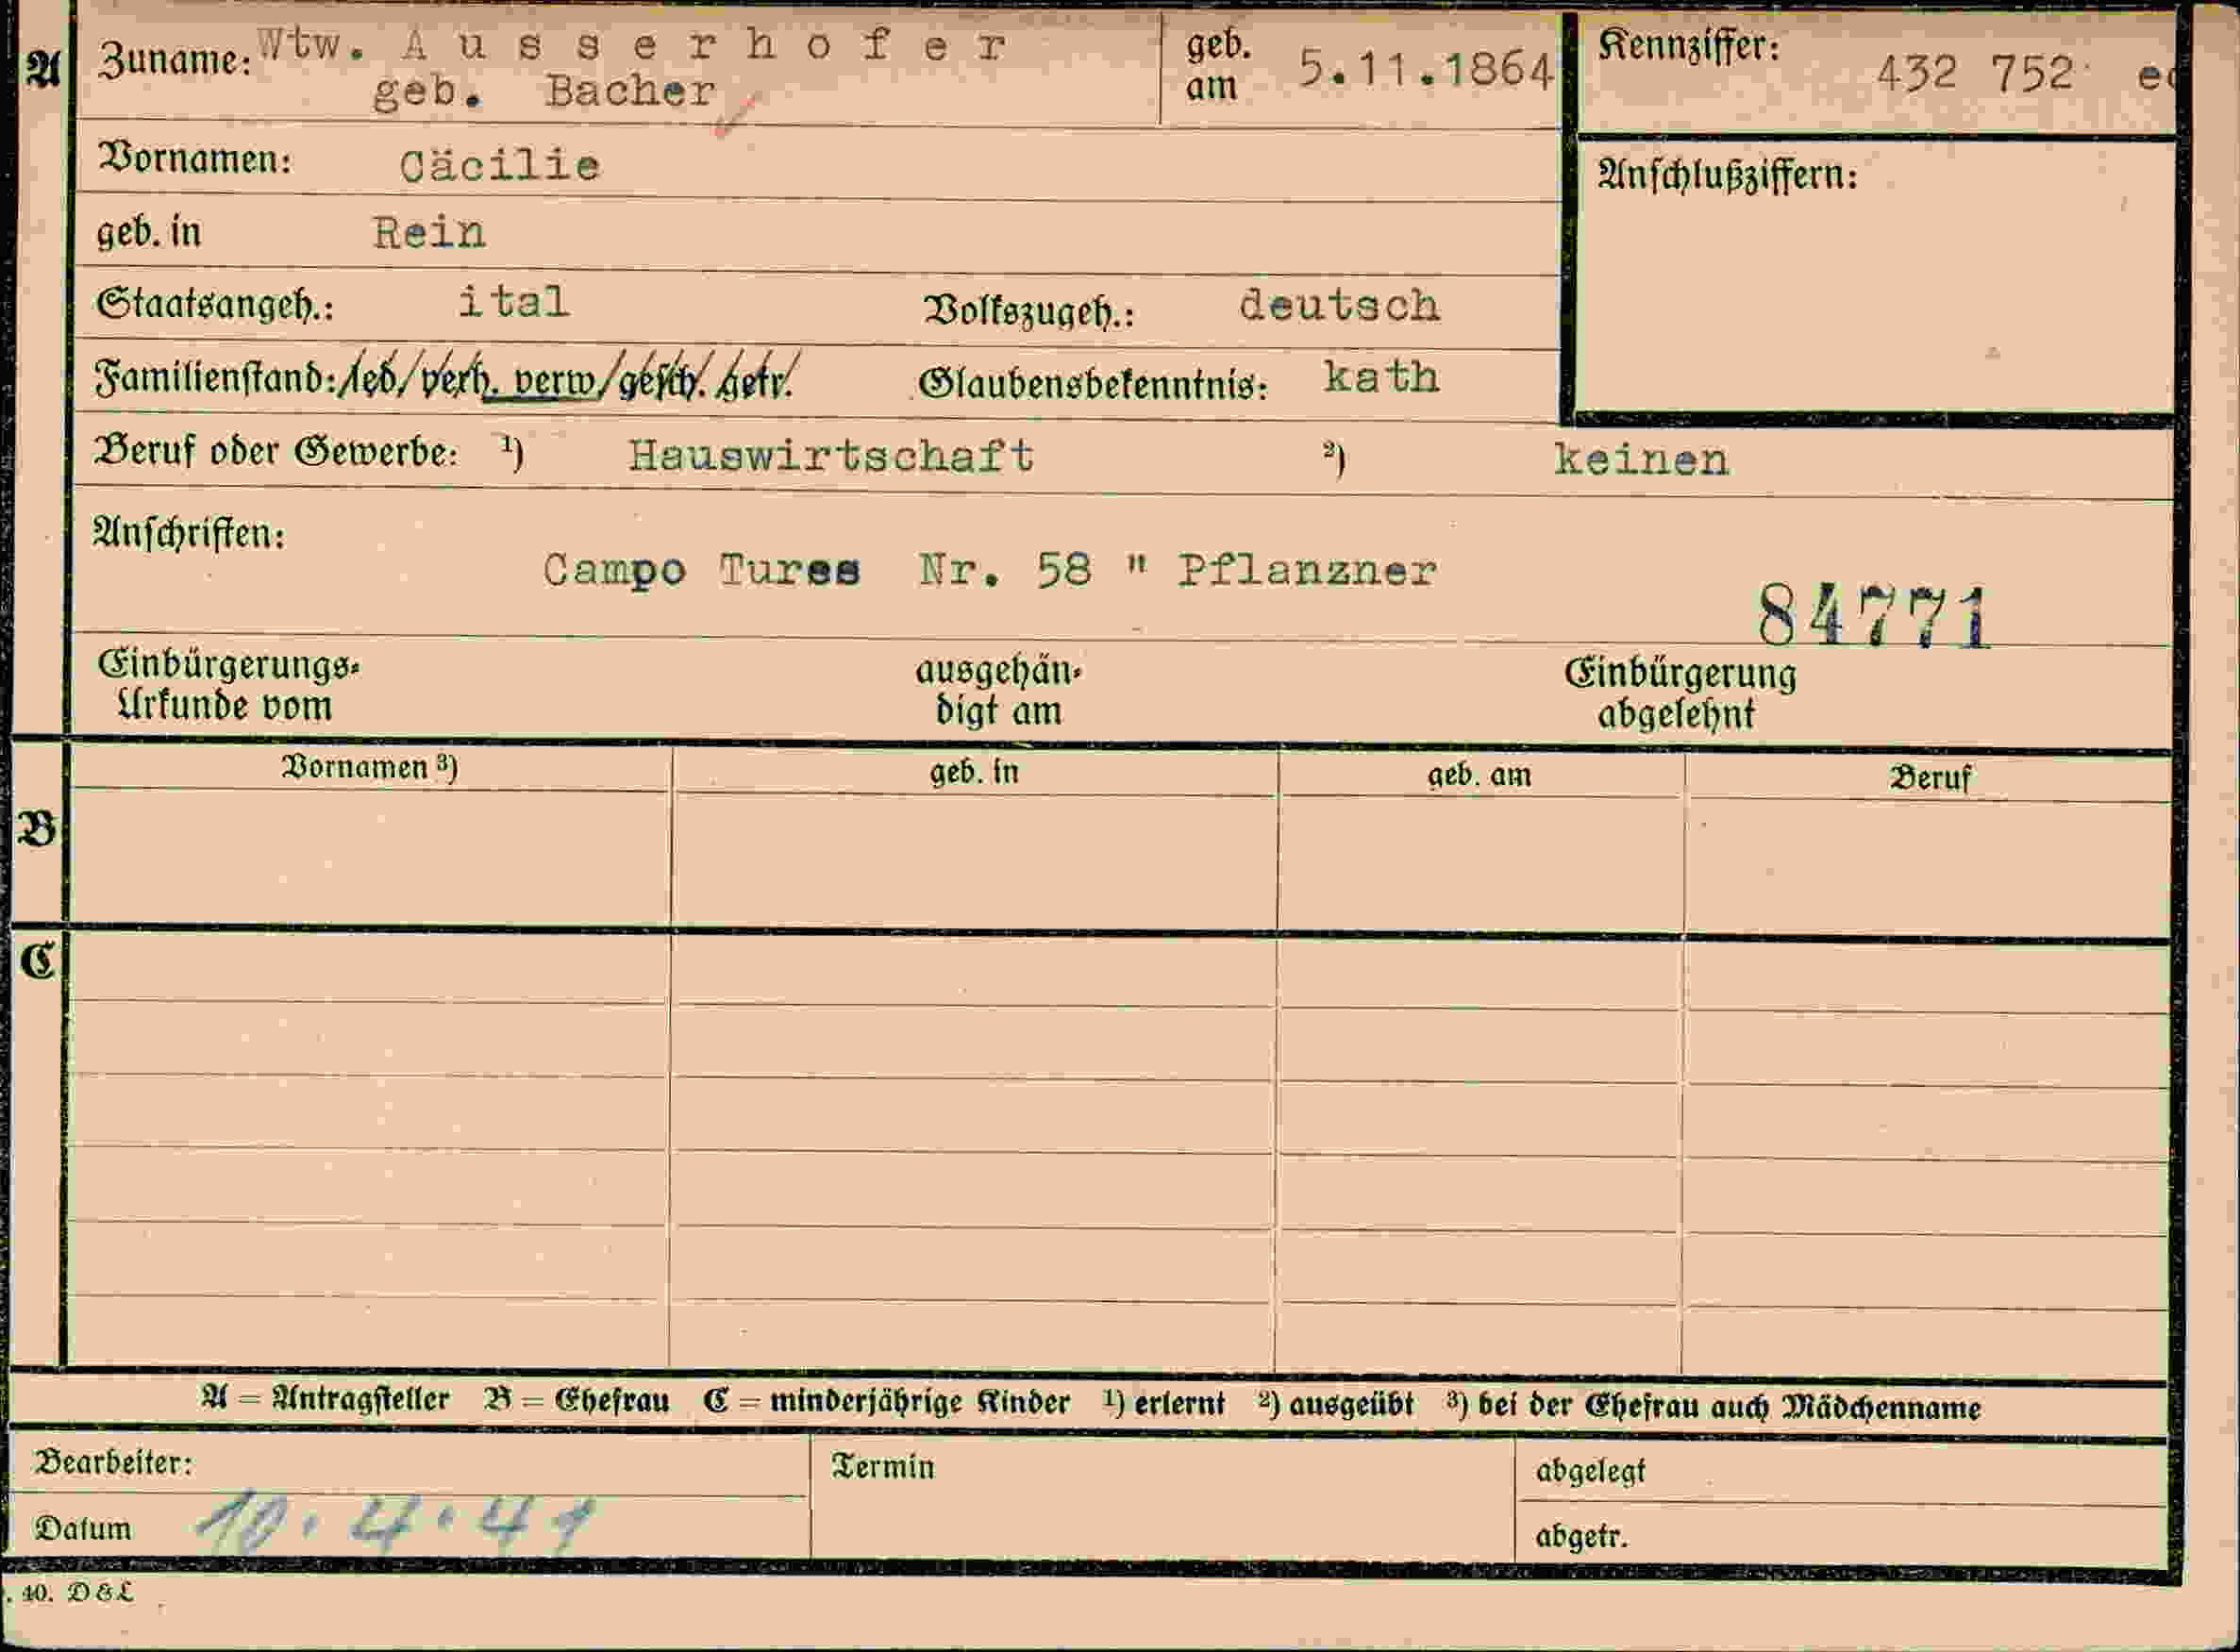 A Zuname: Wtw. Ausserhofer geb. am 5.11.1864 Kennziffer: 432 752
geb. Bacher
Vornamen: Cäcilie Anschlußziffern:
geb. in Rein
Staatsangeh.: ital Volkszugeh.: deutsch
Familienstand: led/verh. verw/gesch. getr. Glaubensbekenntnis: kath
Beruf oder Gewerbe: 1) Hauswirtschaft 2) keinen
Anschriften:
Campo Tures Nr. 58 " Pflanzner
84771
Einbürgerungs- ausgehän- Einbürgerung
Urkunde vom digt am abgelehnt
Vornamen 3) geb. in geb. am Beruf
B
C
A = Antragsteller B = Ehefrau C = minderjährige Kinder 1) erlernt 2) ausgeübt 3) bei der Ehefrau auch Mädchenname
Bearbeiter: Termin abgelegt
Datum 10.4.41 abgetr.
. 40. D & L